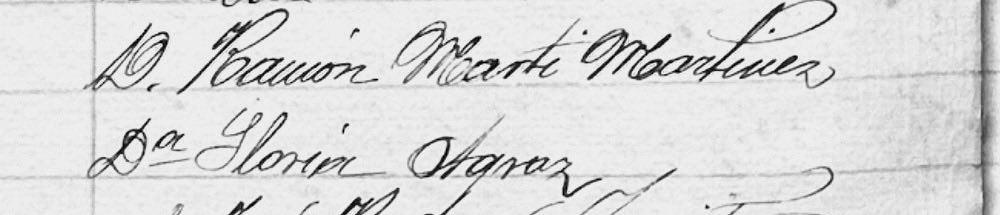 D. Ramón Marti Martinez
Dª Gloria Agraz